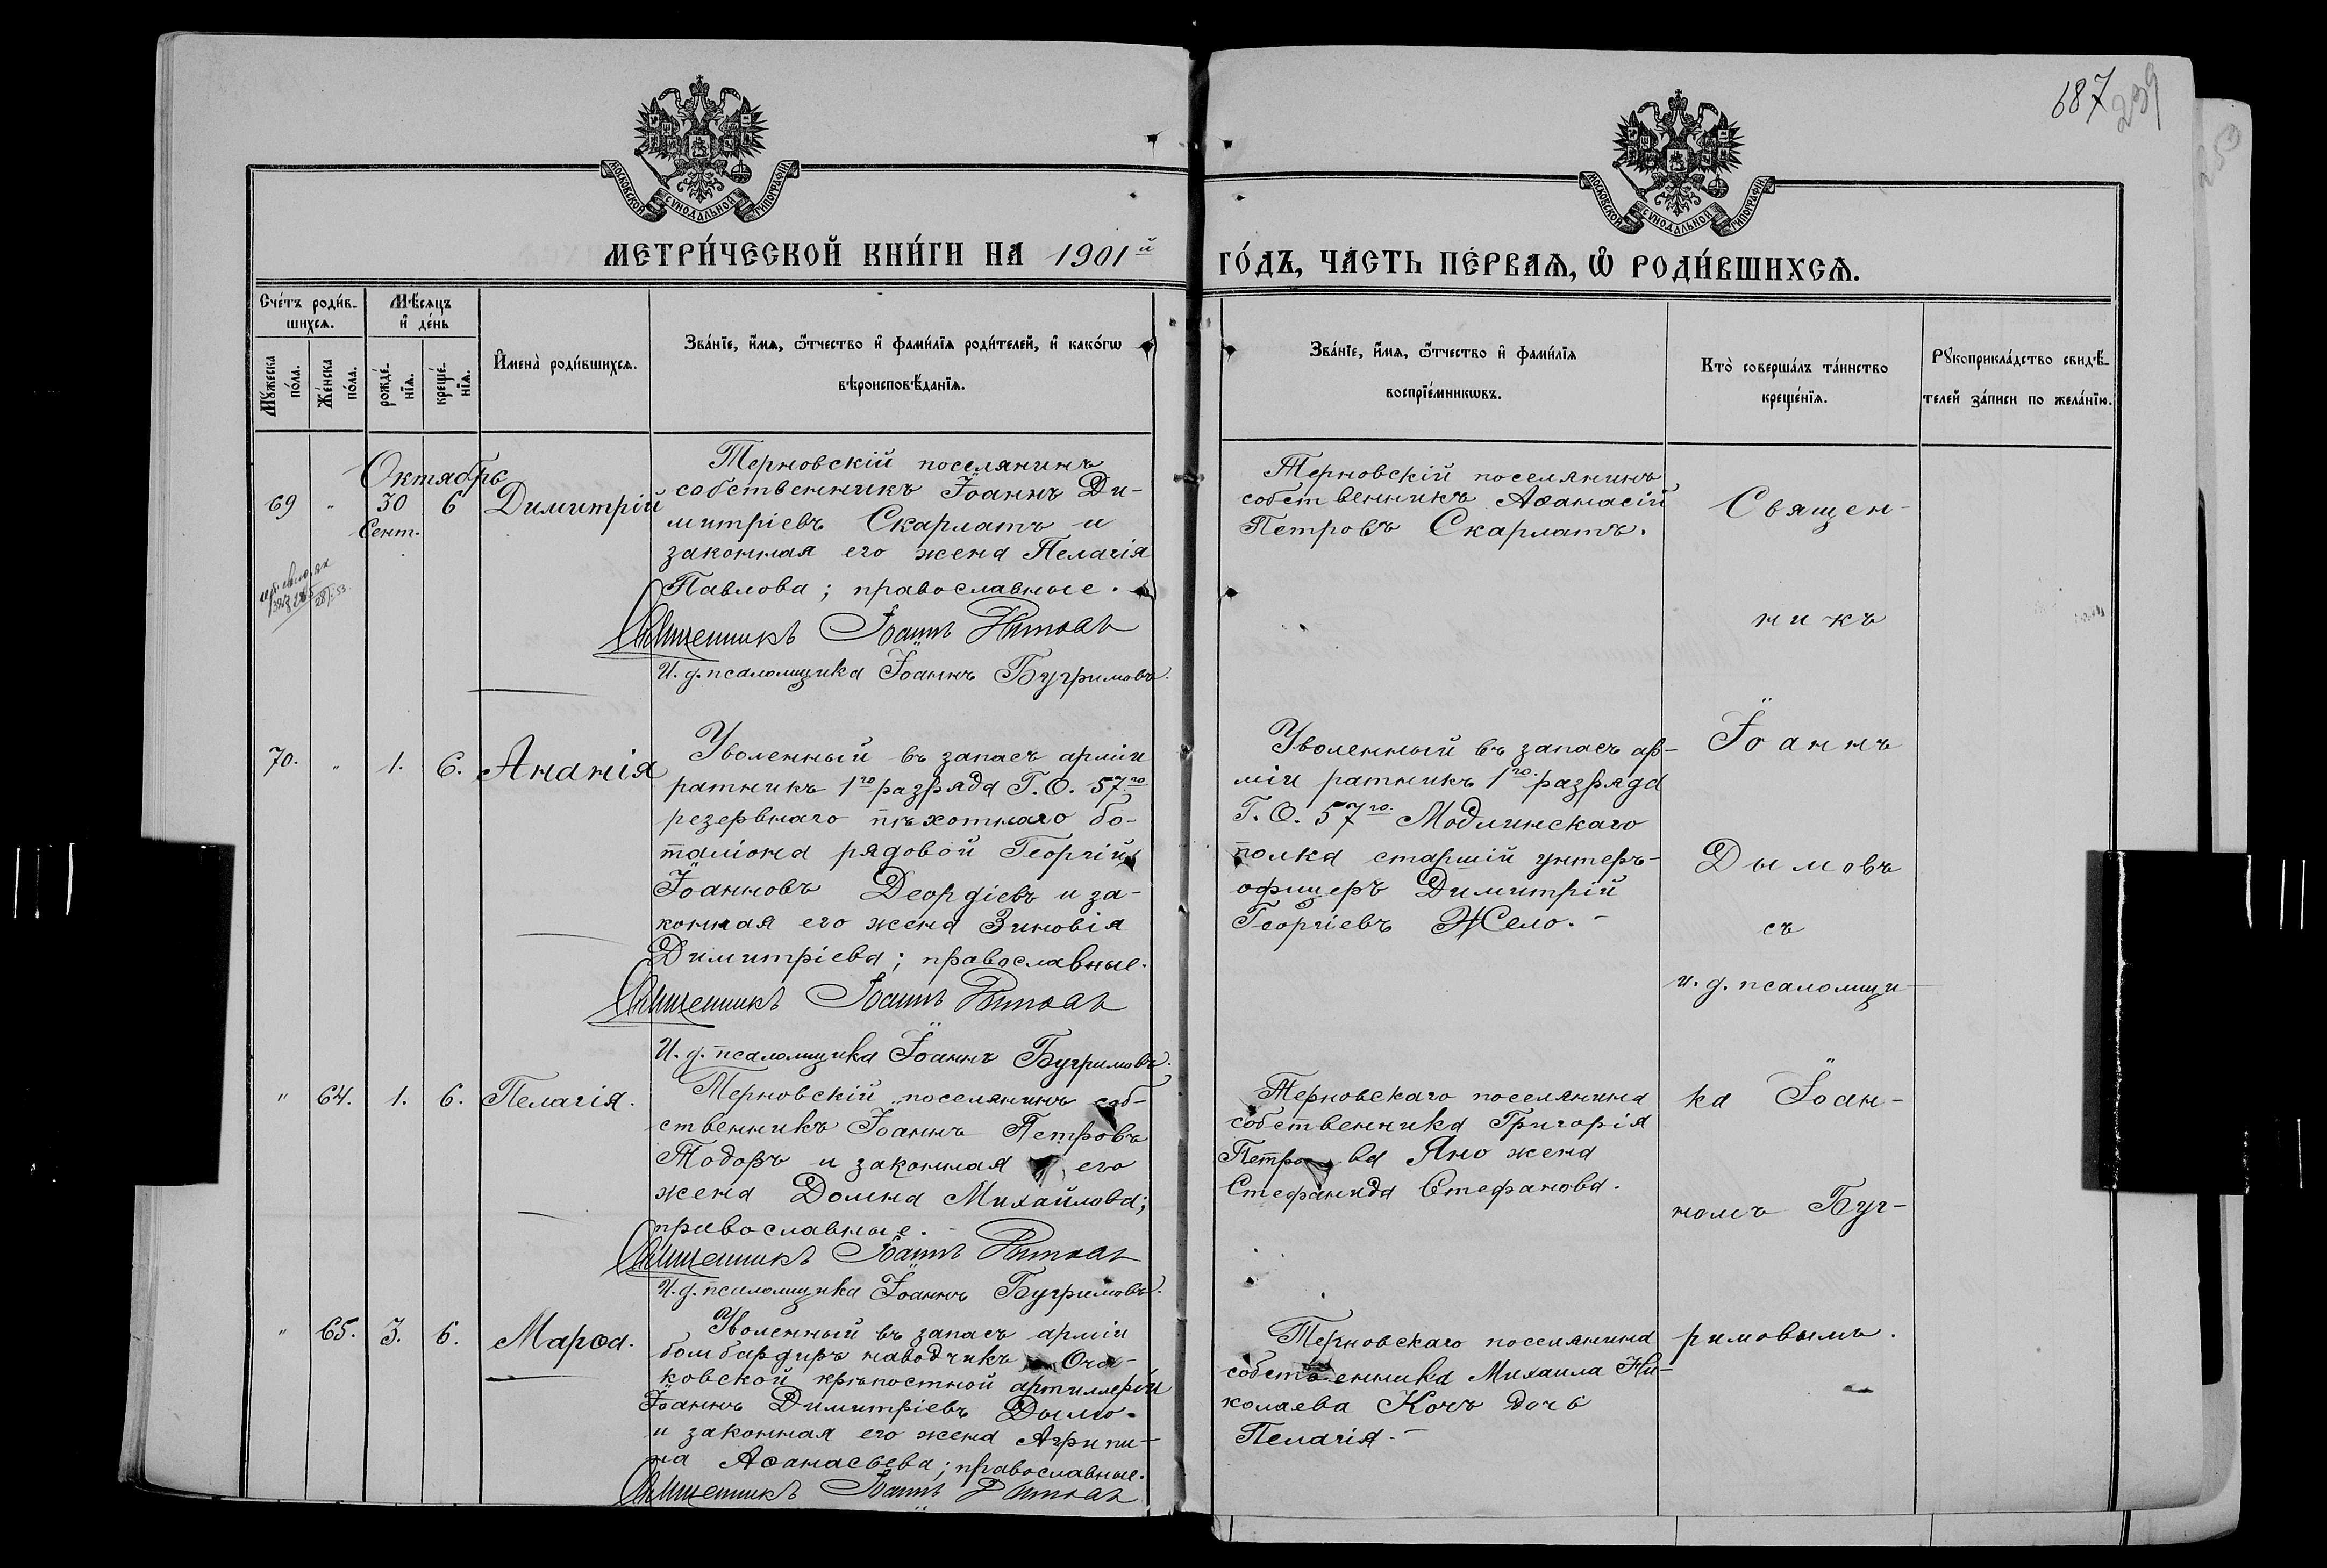 687
239
МОСКОВСКОЙ СУНОДАЛЬНОЙ ТИПОГРАФІИ
МОСКОВСКОЙ СУНОДАЛЬНОЙ ТИПОГРАФІИ
МЕТРИ́ЧЕСКОЙ КНИ́ГИ НА 1901й
ГО́ДЪ, ЧА́СТЬ ПЕ́РВАѦ, Ѽ РОДИ́ВШИХСѦ.
Сче́тъ роди́в-
шихсѧ.
Мѣ́сяцъ
и҆ де́нь
Мꙋ́жеска
по́ла.
Же́нска
по́ла.
рожде́-
нїѧ.
креще́-
нїѧ.
И҆мена̀ роди́вшихсѧ.
Зва́нїе, и҆́мѧ, ѻ҆́тчество и҆ фами́лїѧ роди́телей, и҆ како́гѡ
вѣроисповѣ́данїѧ.
Зва́нїе, и҆́мѧ, ѻ҆́тчество и҆ фами́лїѧ
воспрїе́мникѡвъ.
Кто̀ соверша́лъ та́инство
креще́нїѧ.
Рꙋкоприкла́дство свидѣ́-
телей за́писи по жела́нїю.
Октябрь
69 " 30 6 Димитрій
Сент.
Терновскій поселянинъ
собственникъ Іоаннъ Ди-
митріевъ Скарлатъ и
законная его жена Пелагія
Павлова; православные.
Священникъ Іоаннъ Дымовъ
И. д. псаломщика Іоаннъ Бугримовъ.
Терновскій поселянинъ
собственникъ Аѳанасій
Петровъ Скарлатъ.
70. " 1. 6. Ананія
Уволенный въ запасъ арміи
ратникъ 1го разряда Г. О. 57го
резервнаго пѣхотнаго бо-
таліона рядовой Георгій
Іоанновъ Деордіевъ и за-
конная его жена Зиновія
Димитріева; православные.
Священникъ Іоаннъ Дымовъ
И. д. псаломщика Іоаннъ Бугримовъ.
Уволенный въ запасъ ар-
міи ратникъ 1го разряда
Г. О. 57го Модлинскаго
полка старшій унтеръ-
офицеръ Димитрій
Георгіевъ Жело.-
" 64. 1. 6. Пелагія.
Терновскій поселянинъ соб-
ственникъ Іоаннъ Петровъ
Тодоръ и законная его
жена Домна Михайлова;
православные.-
Священникъ Іоаннъ Дымовъ
И. д. псаломщика Іоаннъ Бугримовъ.
Терновскаго поселянина
собственника Григорія
Петрова Яно жена
Стефанида Стефанова.
" 65. 3. 6. Марѳа.
Уволенный въ запасъ арміи
бомбардиръ наводчикъ Оча-
ковской крѣпостной артиллеріи
Іоаннъ Димитріевъ Дымо-
и законная его жена Агрипи-
на Аѳанасьева; православные.
Священникъ Іоаннъ Дымовъ
Терновскаго поселянина
собственника Михаила Ни-
колаева Кочъ дочь
Пелагія.-
Священ-
никъ
Іоаннъ
Дымовъ
съ
и. д. псаломщи-
ка Іоан-
номъ Буг-
римовымъ.